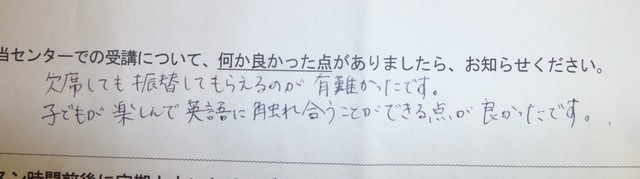 当センターでの受講について、何か良かった点がありましたら、お知らせください。
欠席しても振替してもらえるのが有難かったです。
子どもが楽しんで英語に触れ合うことができる点が良かったです。